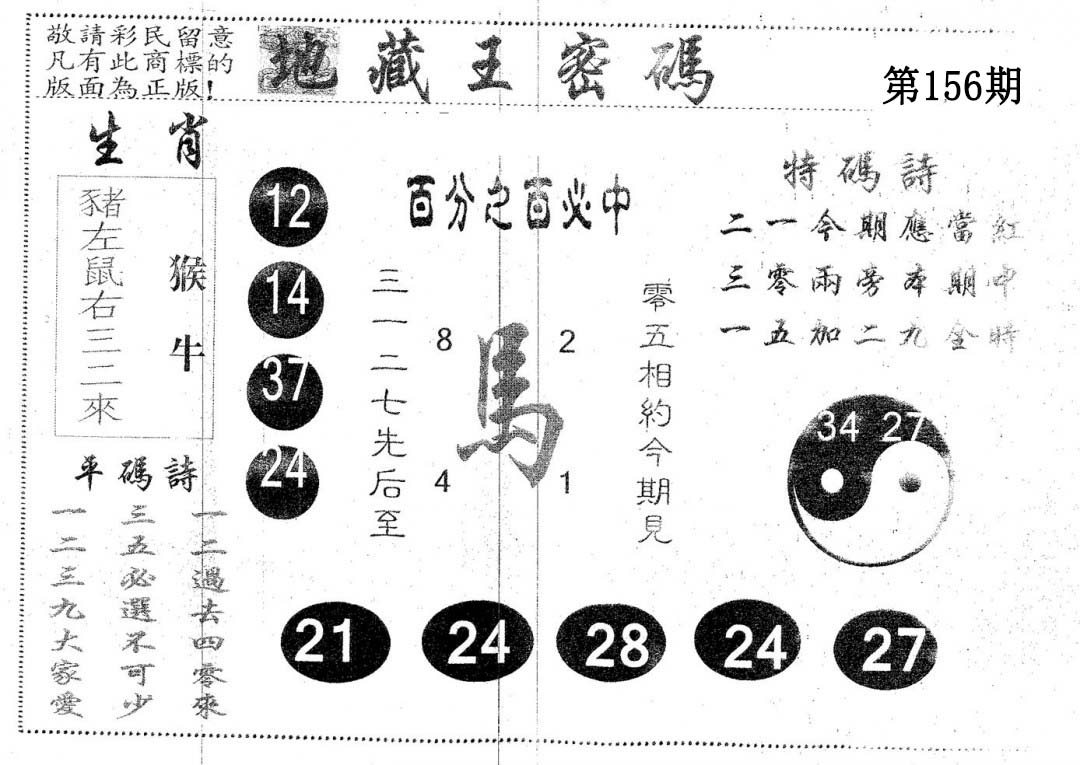 敬請彩民留意
凡有此商標的
版面為正版!
地藏王密碼
第156期
生肖
豬左鼠右三二來
猴牛
12
14
37
24
百分之百必中
三一二七先后至
8
2
馬
4
1
零五相約今期見
特碼詩
二一今期應當紅
三零兩旁本期中
一五加二九金時
34 27
平碼詩
一二過去四零來
三五必選不可少
一二三九大家愛
21
24
28
24
27